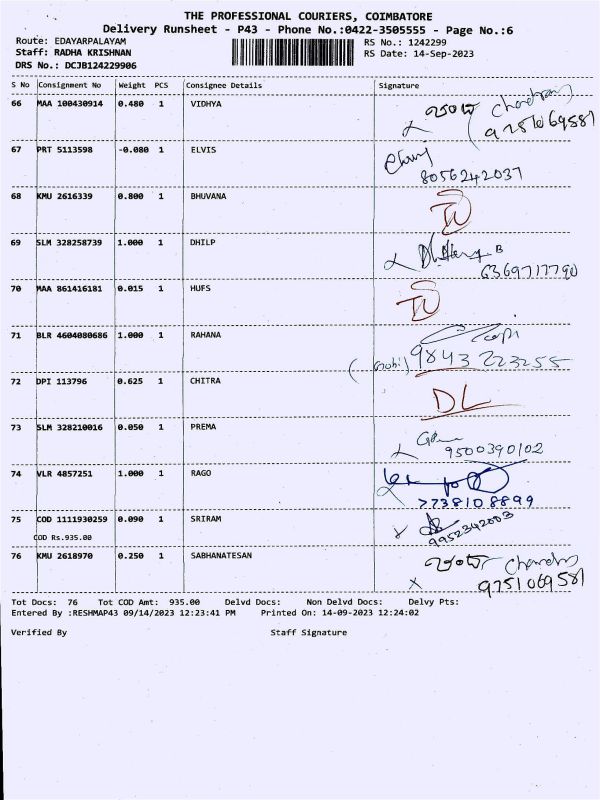 THE PROFESSIONAL COURIERS, COIMBATORE
Delivery Runsheet - P43 - Phone No.:0422-3505555 - Page No.:6
Route: EDAYARPALAYAM
RS No.: 1242299
Staff: RADHA KRISHNAN
RS Date: 14-Sep-2023
DRS No.: DCJB124229906
S No Consignment No Weight PCS Consignee Details Signature
66 MAA 100430914 0.480 1 VIDHYA
9751069581
67 PRT 5113598 -0.080 1 ELVIS
8056242037
68 KMU 2616339 0.800 1 BHUVANA
69 SLM 328258739 1.000 1 DHILP
6369717790
70 MAA 861416181 0.015 1 HUFS
71 BLR 4604080686 1.000 1 RAHANA
9843 223255
72 DPI 113796 0.625 1 CHITRA
DL
73 SLM 328210016 0.050 1 PREMA
9500390102
74 VLR 4857251 1.000 1 RAGO
7738108899
75 COD 1111930259 0.090 1 SRIRAM
9952342003
COD Rs.935.00
76 KMU 2618970 0.250 1 SABHANATESAN
9751069581
Tot Docs: 76 Tot COD Amt: 935.00 Delvd Docs: Non Delvd Docs: Delvy Pts:
Entered By :RESHMAP43 09/14/2023 12:23:41 PM Printed On: 14-09-2023 12:24:02
Verified By Staff Signature